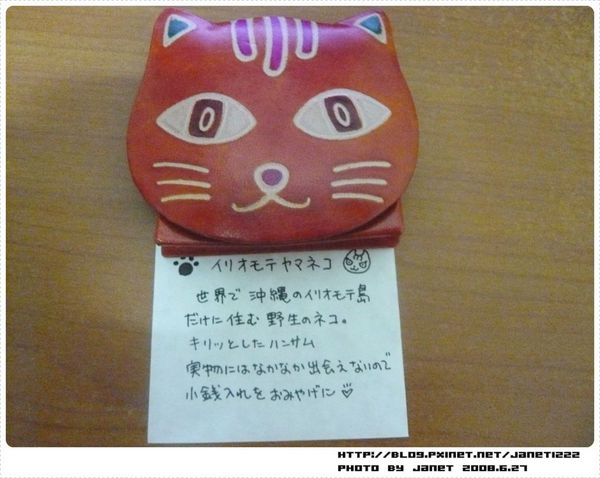 イリオモテヤマネコ
世界で 沖縄のイリオモテ島
だけに住む 野生のネコ。
キリッとしたハンサム
実物にはなかなか出会えないので
小銭入れを おみやげに
HTTP://BLOG.PIXNET.NET/JANET1222
PHOTO BY JANET 2008.6.27